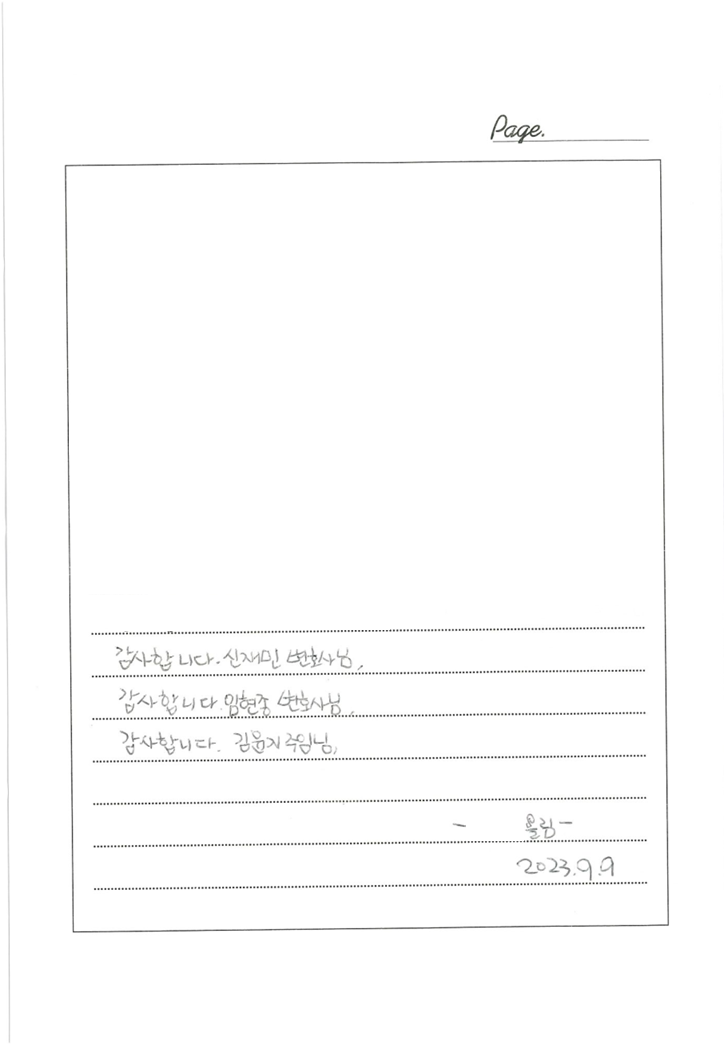 Page.
감사합니다. 신재민 변호사님,
감사합니다 임현종 변호사님,
감사합니다. 김윤지 주임님,
- 올림 -
2023.9.9